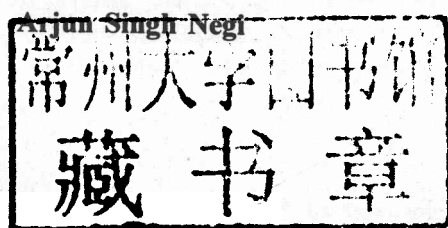 Arjun Singh Negi
常州大学图书馆
藏书章